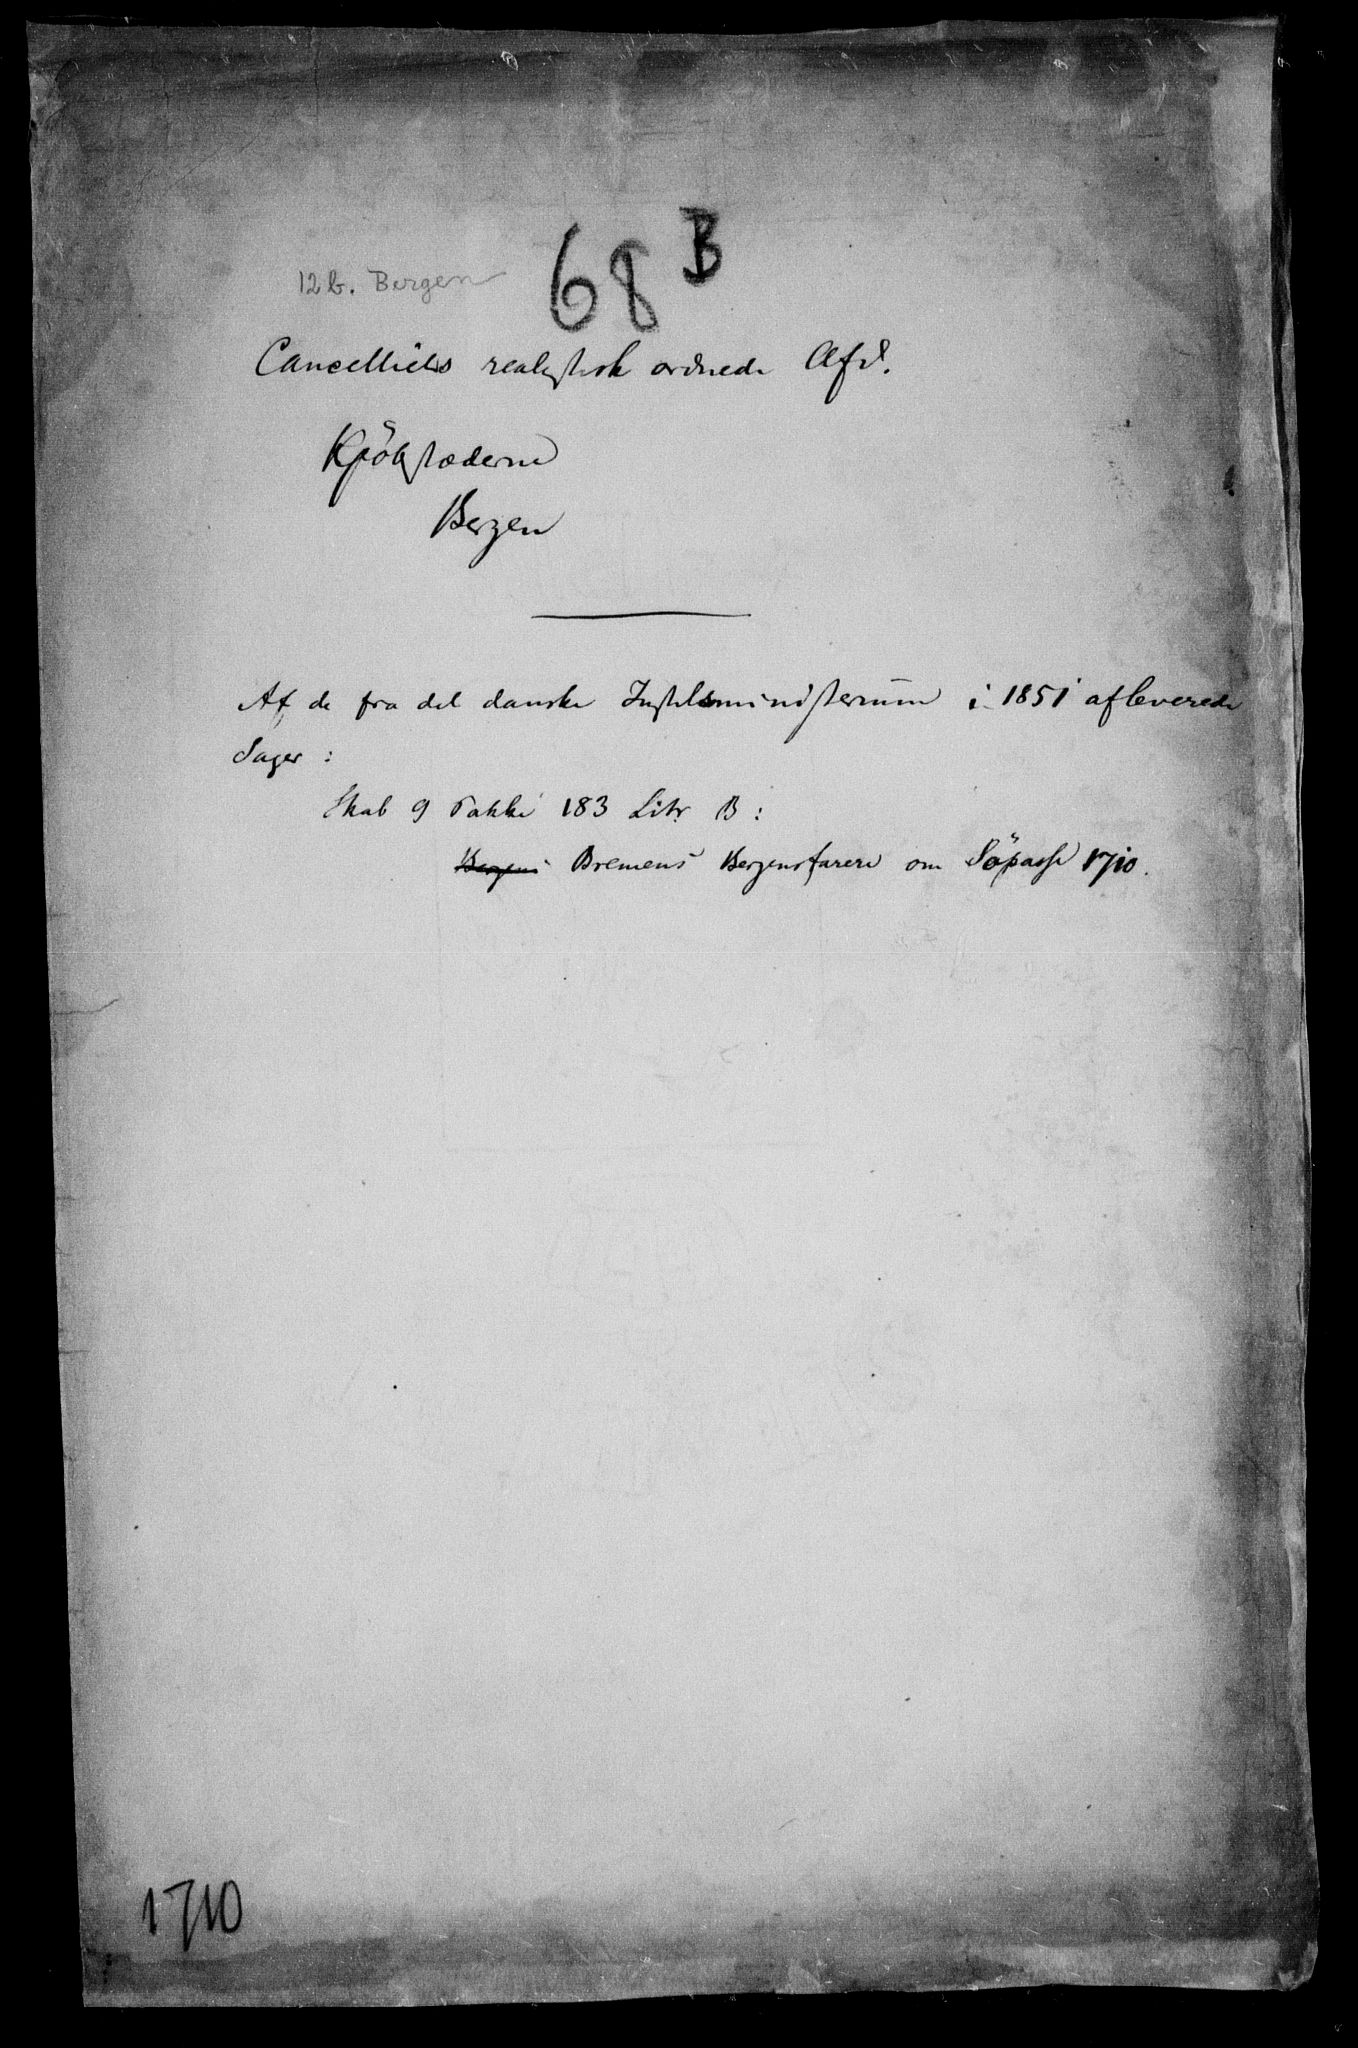 68 B
12 b. Bergen
Cancelliets realistisk ordnede Afd.
Kjöbstæderne
Bergen
Af de fra det danske Justitsministerium i 1851 afleverede
Sager :
Skab 9 Pakke 183 Litr B :
Bergens Bremens Bergensfarere om Söpasse 1710.
1710